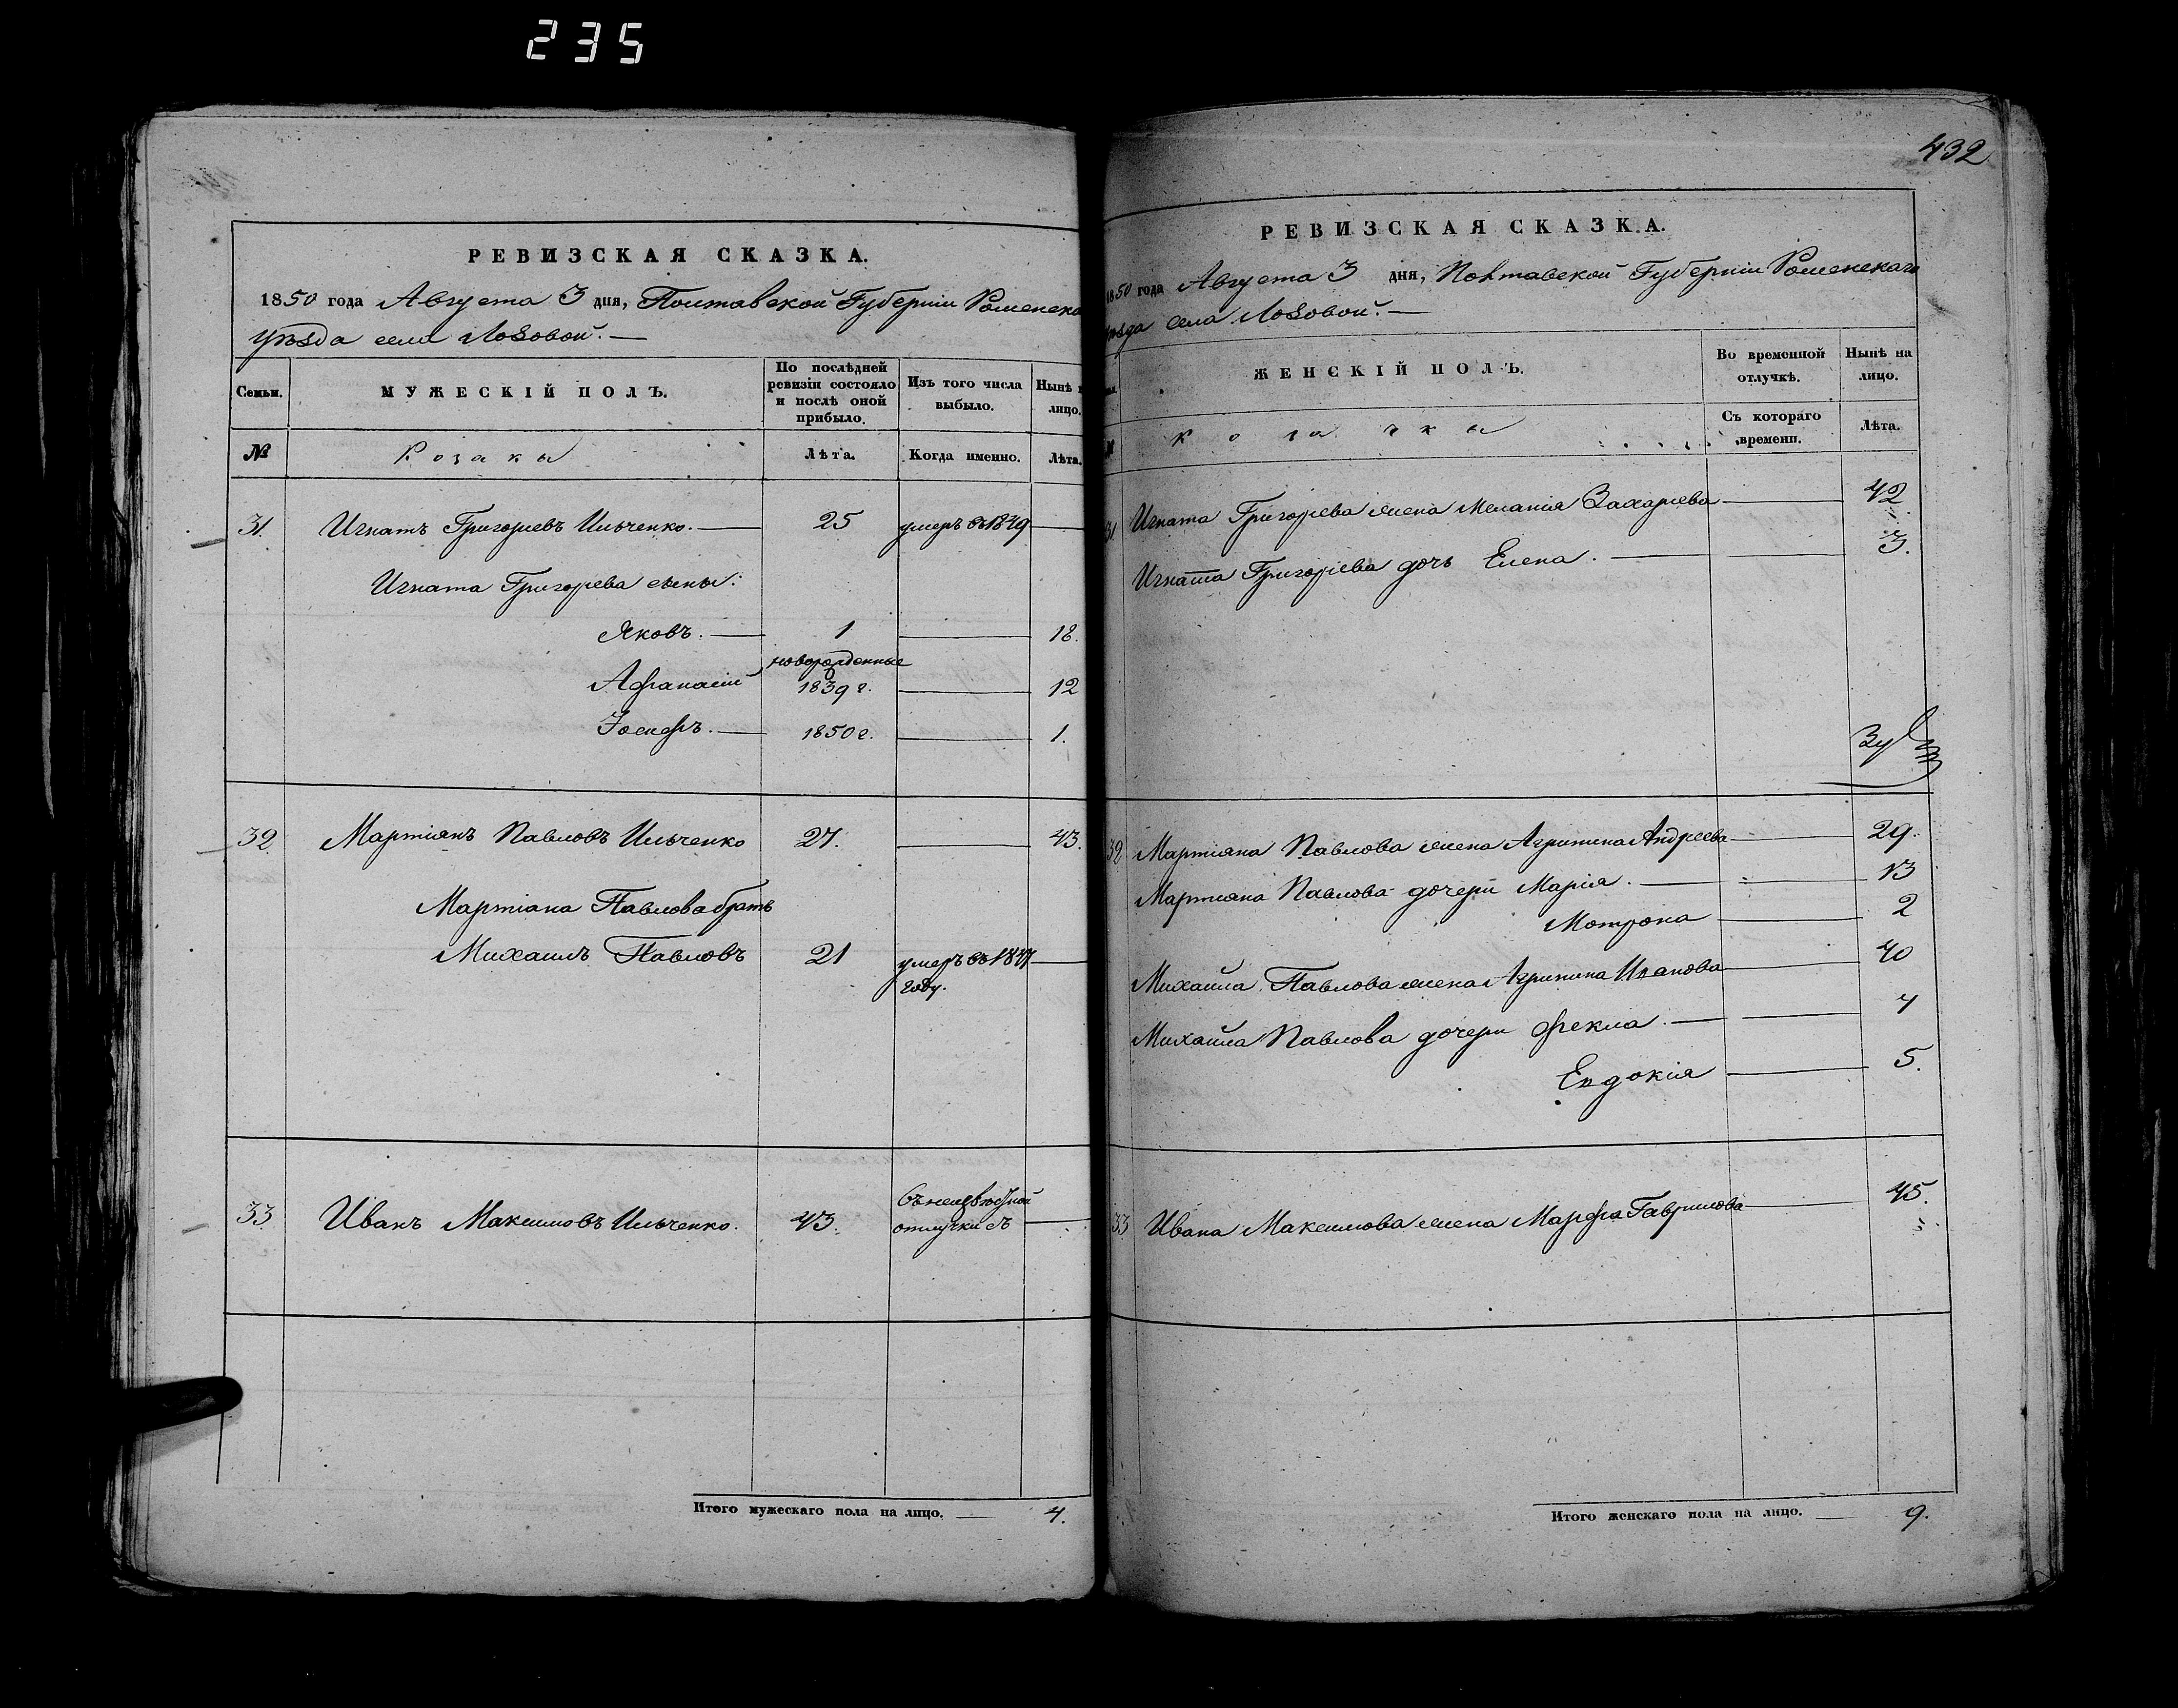 235
432
РЕВИЗСКАЯ СКАЗКА.
1850 года Августа 3 дня, Полтавской Губерніи Роменска
уѣзда села Лозовой. —
Семьи.
МУЖЕСКІЙ ПОЛЪ.
По послѣдней ревизіи состояло и послѣ оной прибыло.
Изъ того числа выбыло.
Нынѣ н лицо.
№
Козаки
Лѣта.
Когда именно.
Лѣта.
31. Игнатъ Григорьевъ Ильченко. — 25 умеръ въ 1849 —
Игната Григорьева сыны:
Яковъ. — 1 — 18.
новорожденные
Афанасій 1839 г. — 12
Іосифъ. — 1850 г. — 1.
32 Мартіянъ Павловъ Ильченко 27. — 43.
Мартіана Павлова братъ
Михаилъ Павловъ 21 умеръ въ 1847 —
году.
33 Иванъ Максимовъ Ильченко. 43.
отлучки съ —
Итого мужескаго пола на лицо. — 4.
РЕВИЗСКАЯ СКАЗКА.
1850 года Августа 3 дня, Полтавской Губерніи Роменскаго
уѣзда села Лозовой. —
ЖЕНСКІЙ ПОЛЪ.
Во временной отлучкѣ.
Нынѣ на лицо.
№
Козачки
Съ котораго времени.
Лѣта.
31 Игната Григорьева жена Меланія Захарьева — 42
Игната Григорьева дочь Елена. — 3.
32 Мартіяна Павлова жена Агрипина Андреева — 29.
Мартіяна Павлова дочери Марія. — 13
Мотрона — 2
Михайла Павлова жена Агрипина Иванова — 40
Михайла Павлова дочери Фекла. — 7
Евдокія — 5.
33 Ивана Максимова жена Марфа Гаврилова — 45.
Итого женскаго пола на лицо. — 9.